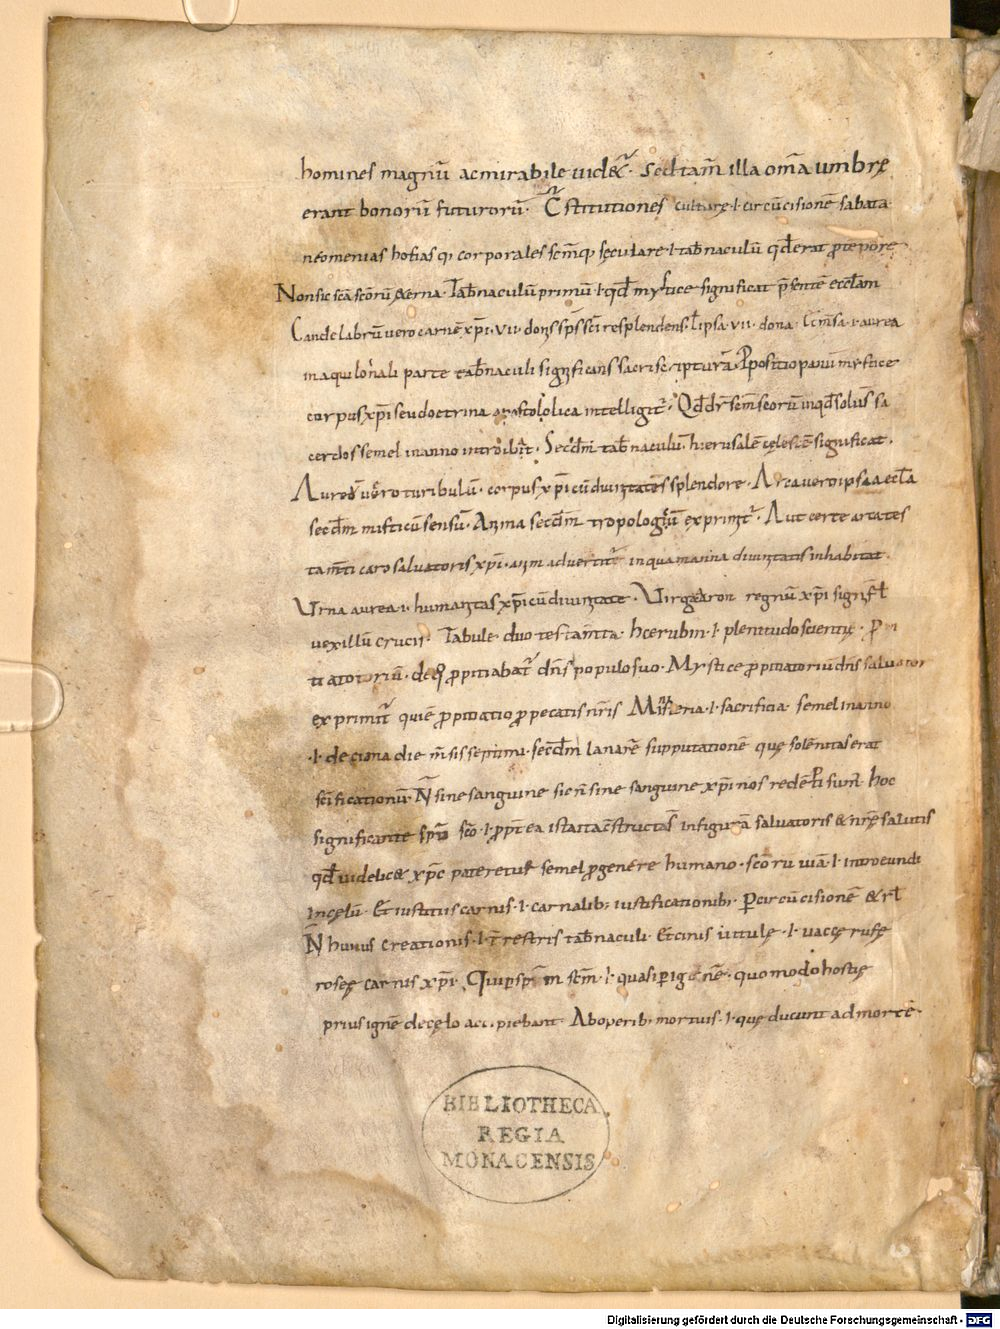 homines magnū ac mirabile uid&̄. Sed tam̄ illa om̄a umbrę
erant bonorū futurorū. C̄stitutiones culturę .i. circūcisionē sabata
neomenias hostias q; corporales sc̄mq; sęculare .i. tab̄naculū qđ erat p̄ tēpore
Non sic sc̄a sc̄orū &erna. Tab̄naculū primū .i. qđ mystice significat p̄sentē eccl̄am
Candelabrū uero carnē xp̄i .VII. donis sp̄s sc̄i resplendens ł ipsa .VII. dona. aurea
in aquilonali parte tab̄naculi significans sacri scripturā. Ppositio panū mystice
corpus xp̄i seu doctrina apostololica intelligit̄. Qđ dr̄ solus sa
cerdos semel in anno introibit. tab̄naculū hierusalē cęlestē significat.
Aureū uero turibulū. corpus xp̄i cū diuinitatēs splendore. Arca uero ipsa aeccl̄a
secđm misticū sensū. Anima secđm exprimit̄. Aut certe
caro saluatoris xp̄i. aduertit̄ in qua manna diuinitatis inhabitat.
Vrna aurea .i. humanitas xp̄i cū diuinitate. Virga aaron regnū xp̄i ł
uexillū crucis. Tabule duo testam̄ta. hcerubin .i. plenitudo scientię.
ttiatorium. de q̊ p̄pitiabat̄ dn̄s populo suo. Mystice p̄pitiatoriū dn̄s saluator
exprimit̄ qui ē p̄pitiatio p̄ peccatis n̄ris .i. sacrificia semel in anno
.i. decima die m̄sis septimi. secđm lunarē supputationē quę solēnitas erat
sc̄ificationū. N̄ sine sanguine sic n̄ sine sanguine xp̄i nos redēpti sum̄. hoc
significante sp̄u sc̄o .i. p̄pt̄ea ista ita c̄structa s̄ in figurā saluatoris & n̄rę salutis
qđ uidelic& xp̄c pateretur semel p̄ genere humano. sc̄oru uiā .i. introeundi
in cęlū. Et iustitiis carnis .i. carnalib; iustificationib;. P circūcisionē & rł
N̄ huius creationis .i. t̄restris tab̄naculi. Et cinis uitulę .i. uaccę rufę
rosee carnis xp̄i. Qui p sp̄m sc̄m .i. quasi p ignē. quomodo hostię
prius ignē de cęlo accipiebant. Ab operib; mortuis .i. quę ducunt ad mortē.
BIBLIOTHECA
REGIA
MONACENSIS
Digitalisierung gefördert durch die Deutsche Forschungsgemeinschaft - DFG